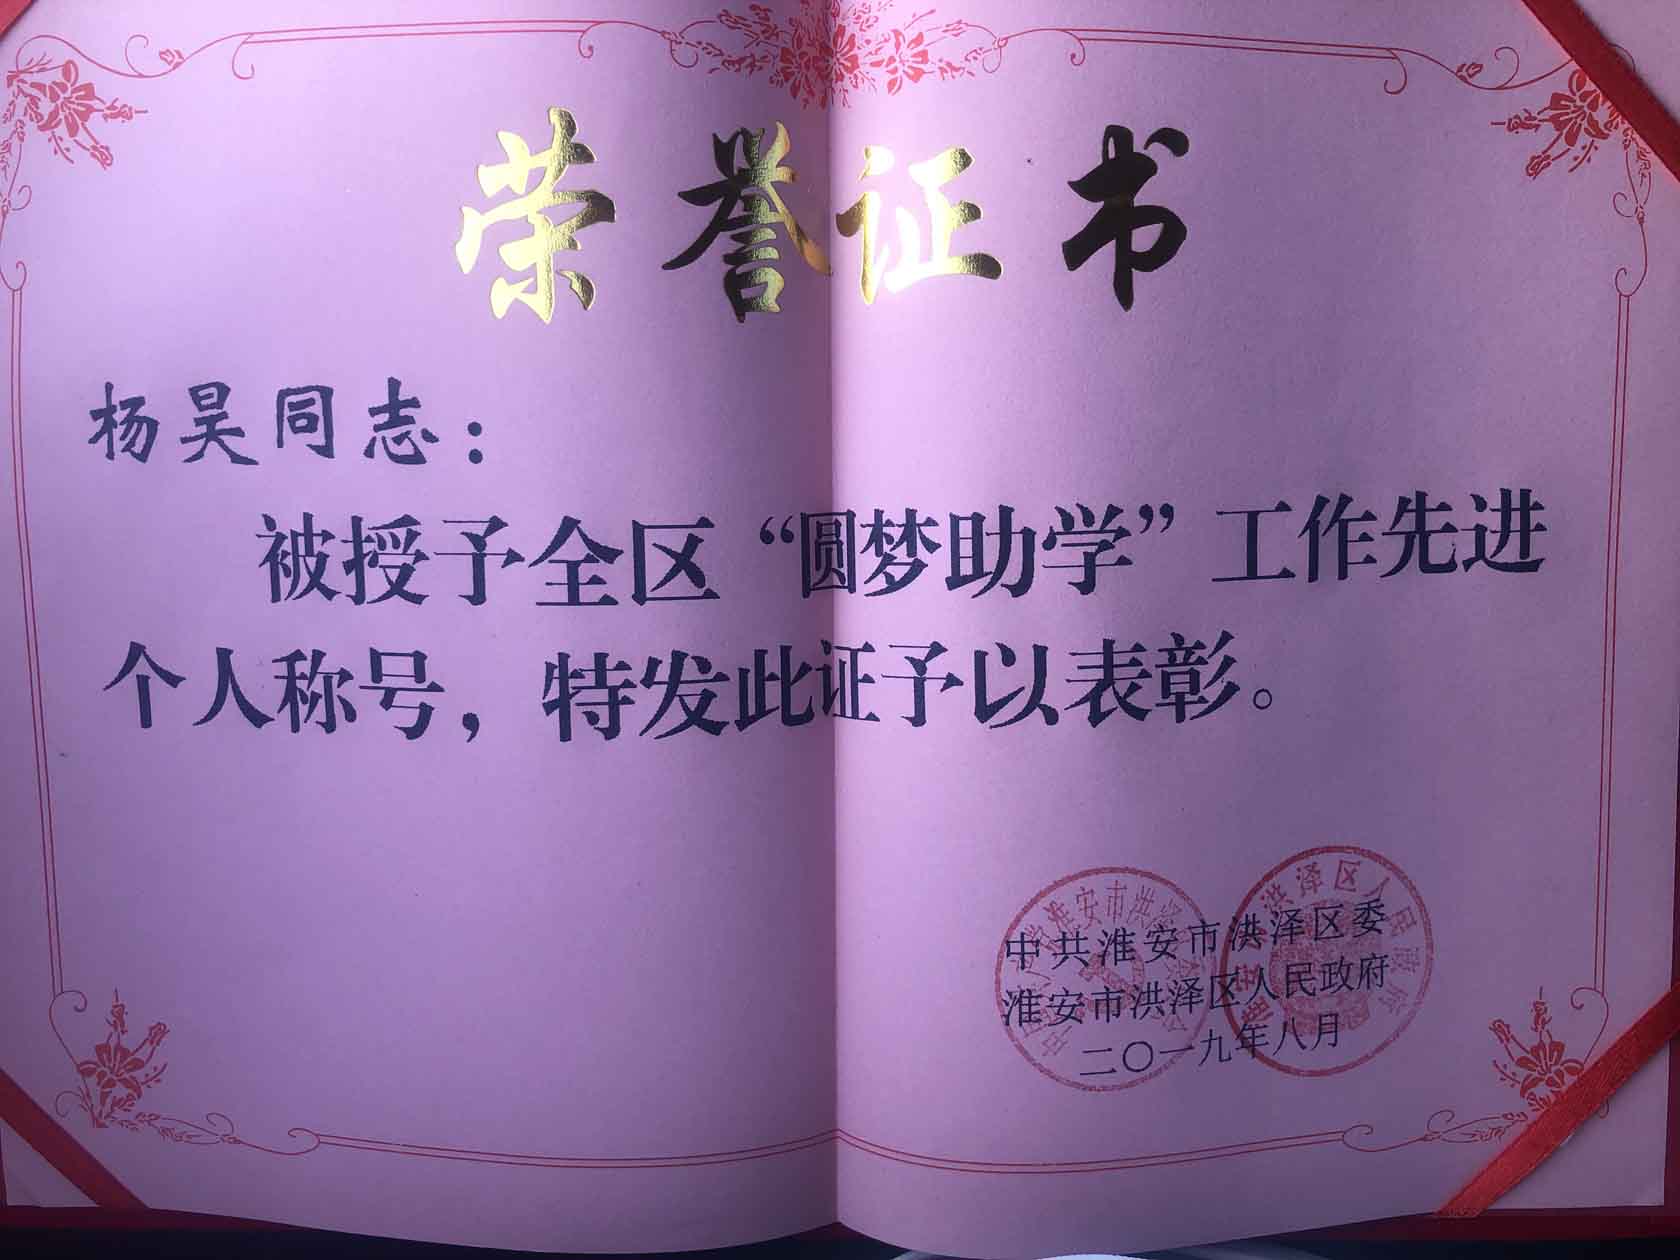 荣誉证书
杨昊同志：
被授予全区“圆梦助学”工作先进
个人称号，特发此证予以表彰。
中共淮安市洪泽区委
淮安市洪泽区人民政府
二〇一九年八月